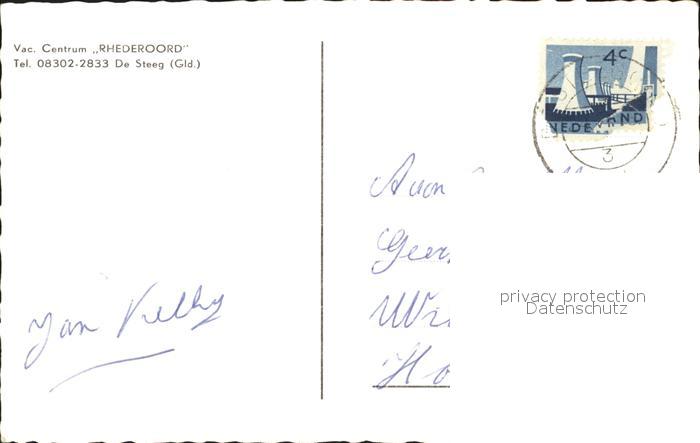 Vac. Centrum „RHEDEROORD"
Tel. 08302-2833 De Steeg (Gld.)
4c
NEDERLAND
3
Aan
Geer
Wi
Ho
privacy protection
Datenschutz
Jan